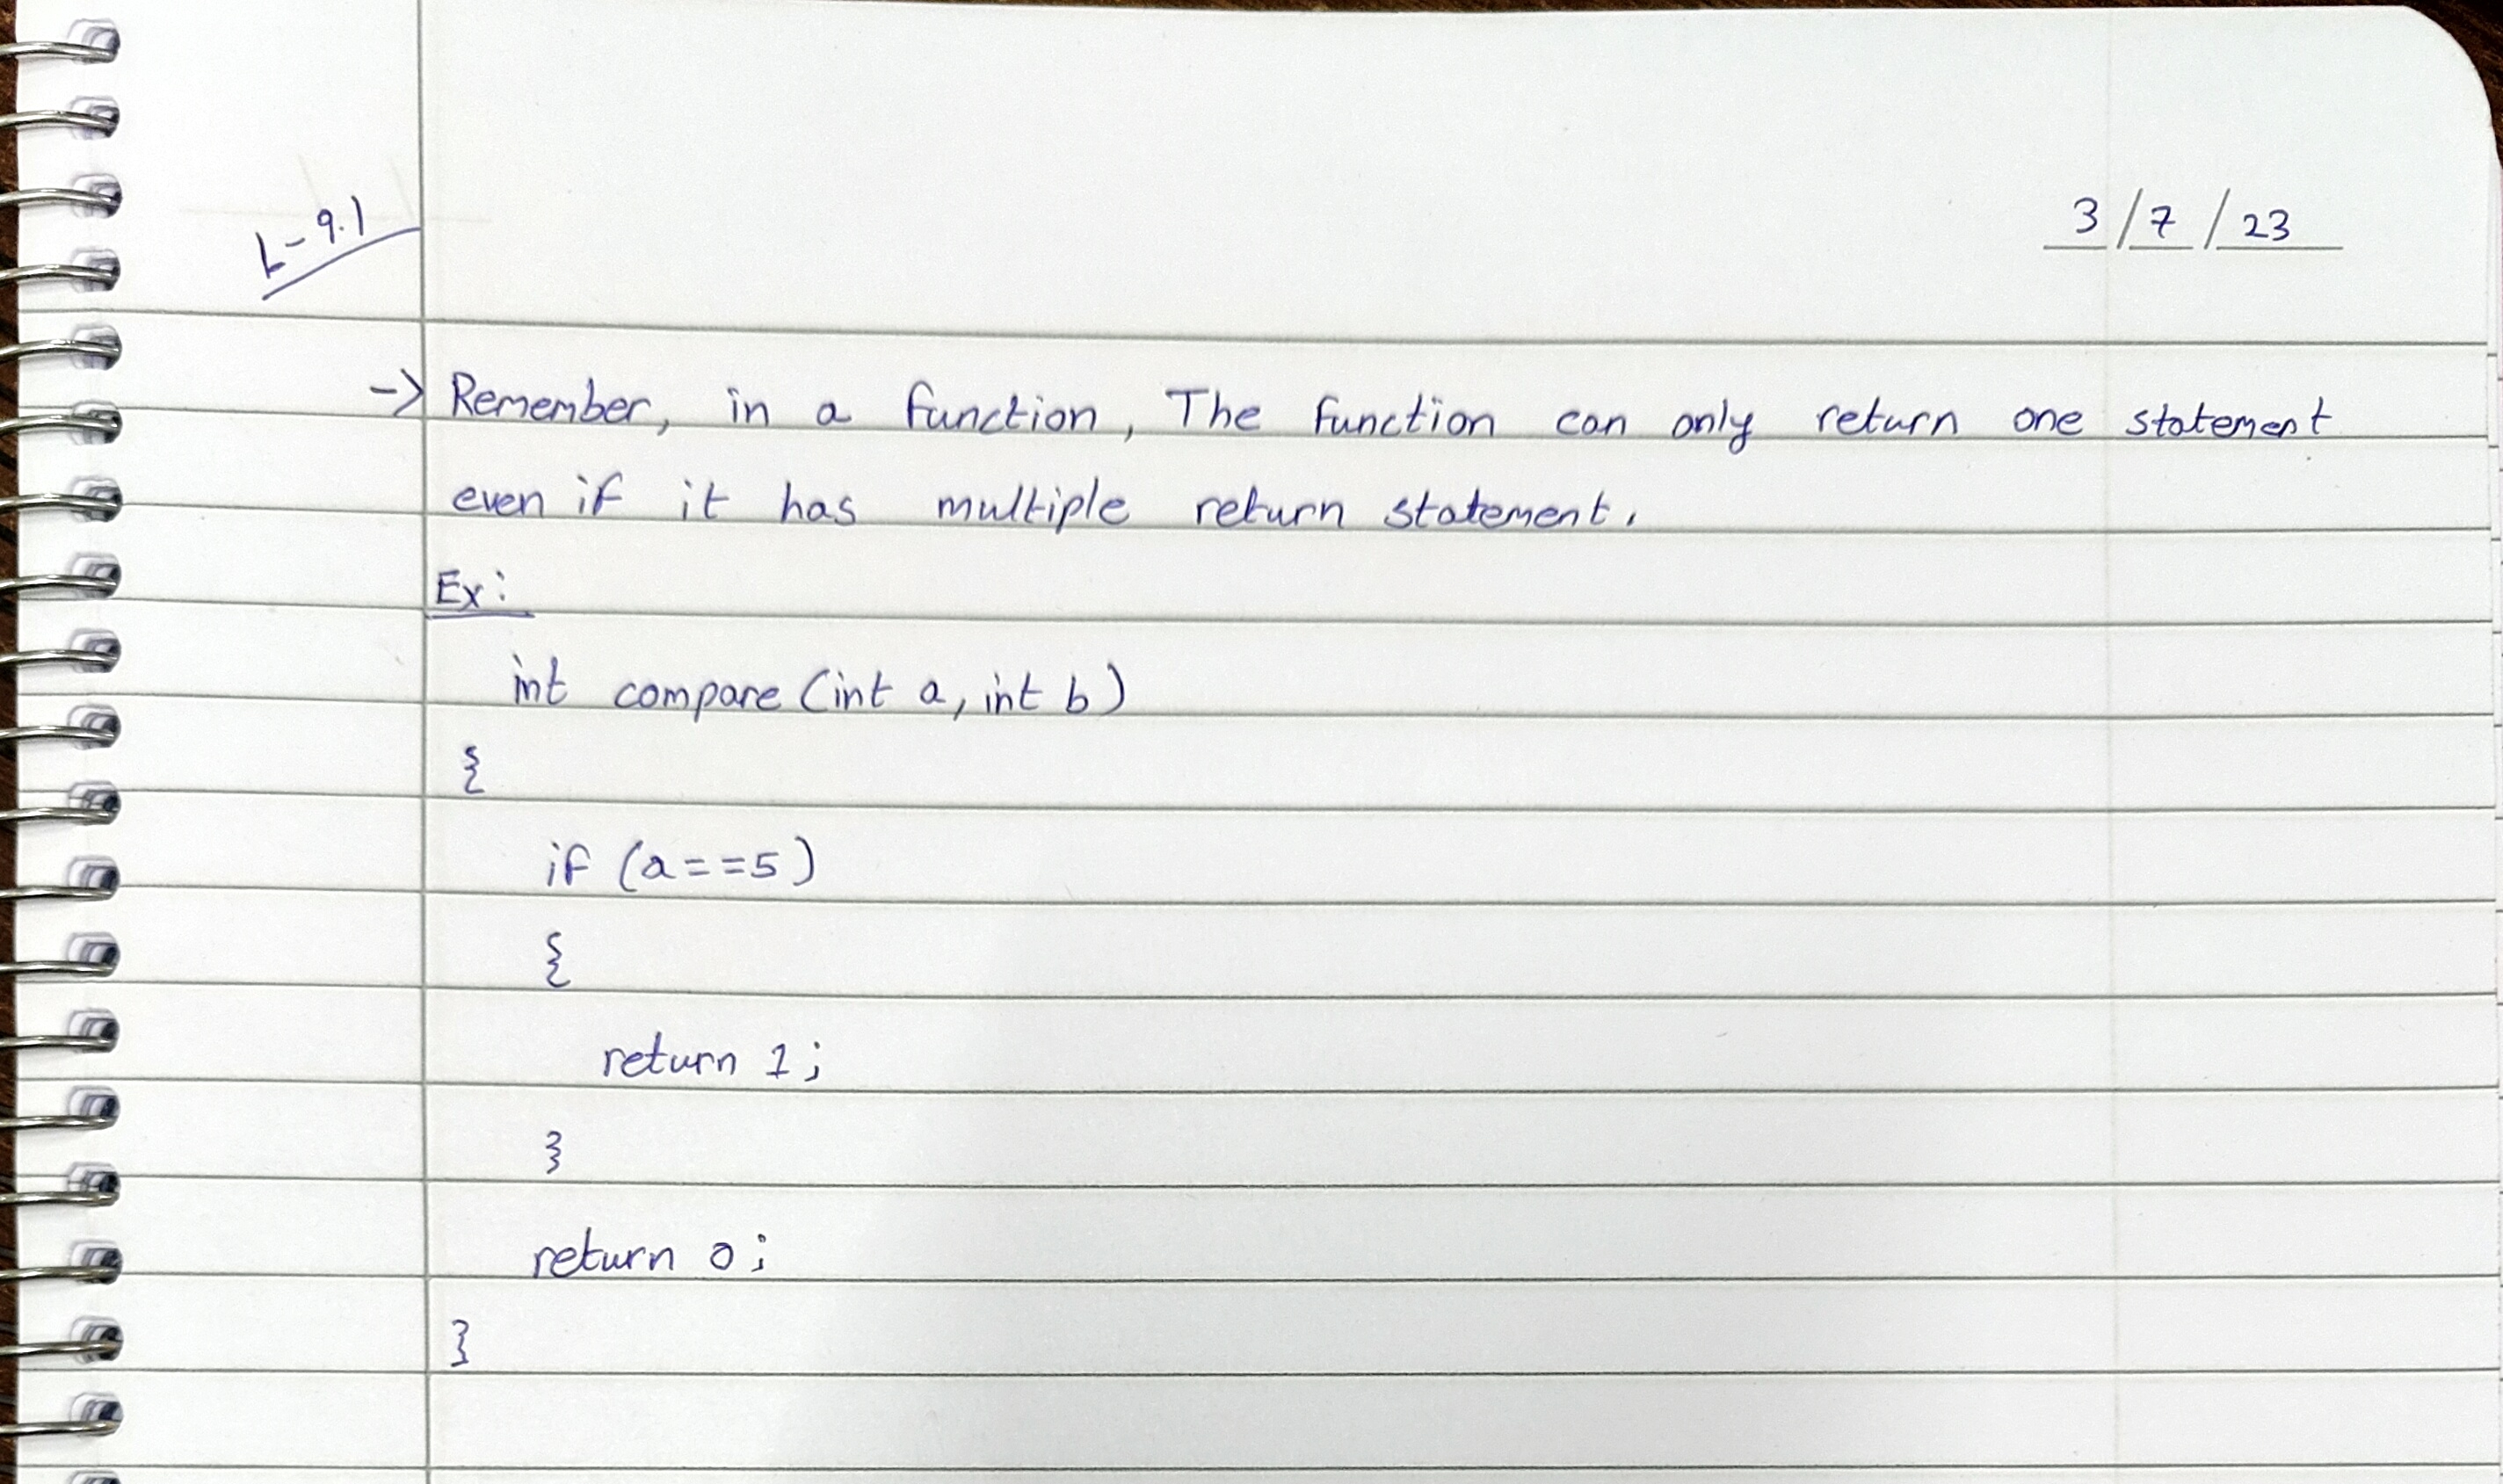 L-9.1
3/7/23
-> Remember, in a function, The function can only return one statement
even if it has multiple return statement.
Ex:
int compare (int a, int b)
{
if (a==5)
{
return 1;
}
return 0;
}